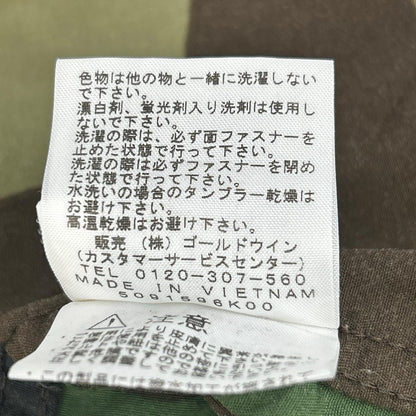 色物は他の物と一緒に洗濯しない
で下さい。
漂白剤、蛍光剤入り洗剤は使用し
ないで下さい。
洗濯の際は、必ず面ファスナーを
止めた状態で行って下さい。
洗濯の際は必ずファスナーを閉め
た状態で行って下さい。
水洗いの場合のタンブラー乾燥は
お避け下さい。
高温乾燥はお避け下さい。
販売 (株) ゴールドウイン
(カスタマーサービスセンター)
TEL 0120-307-560
MADE IN VIETNAM
5091596K00
注意